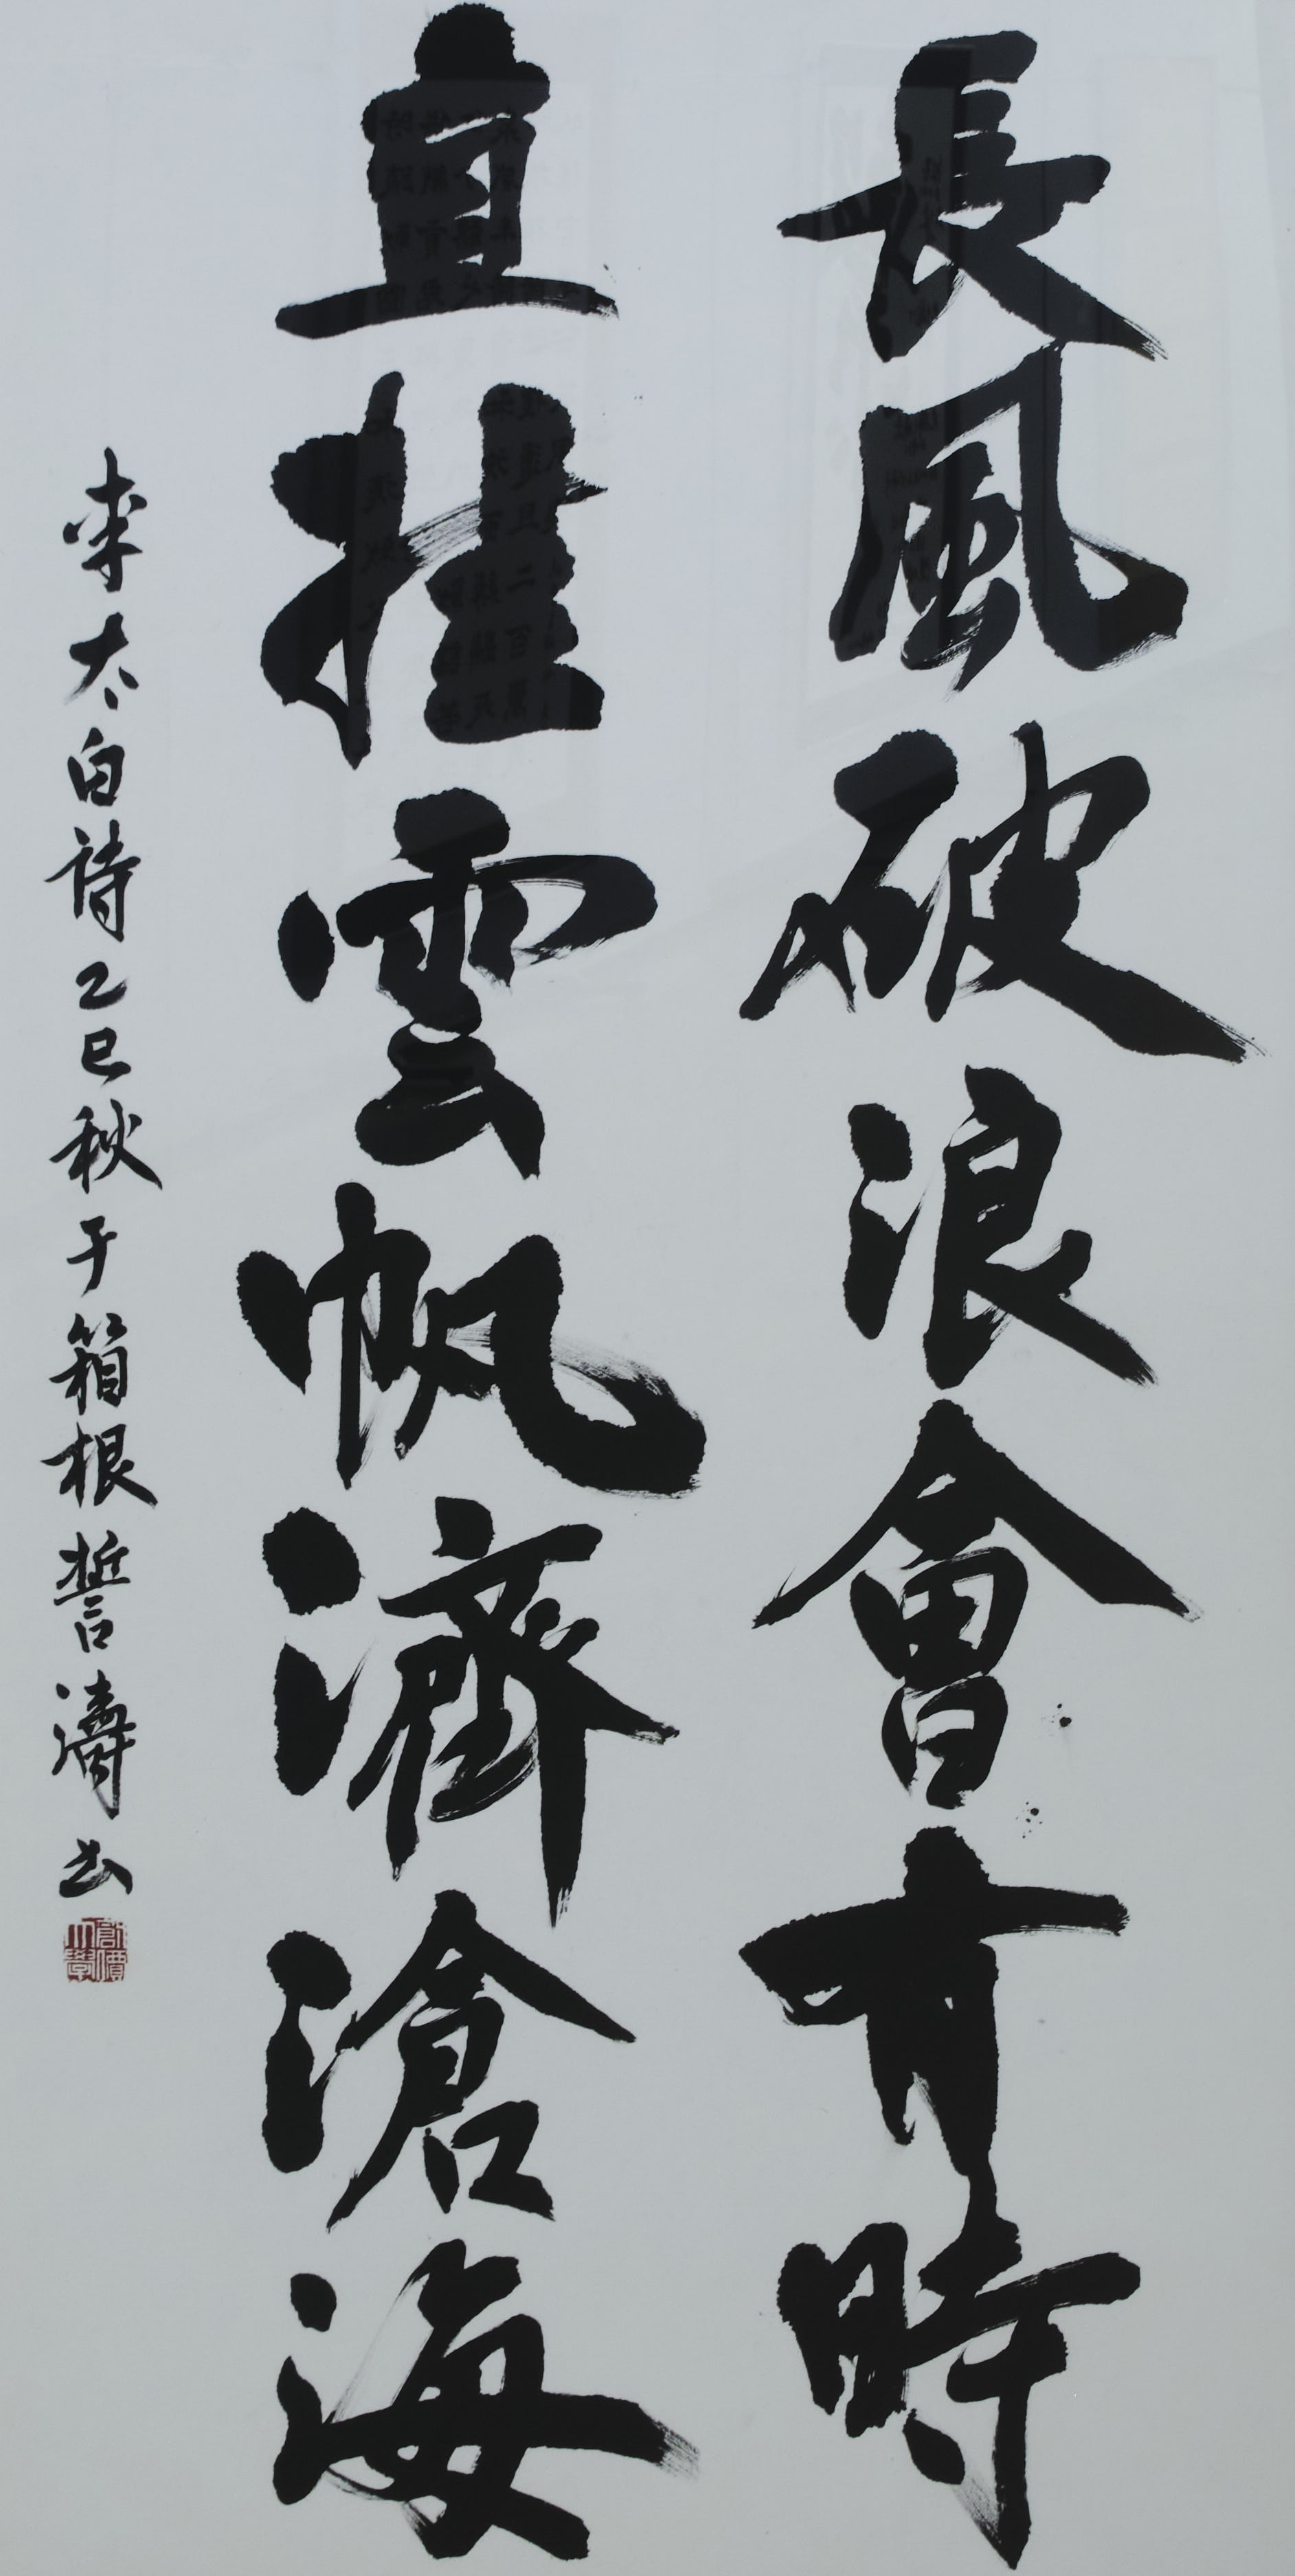 長風破浪會有時
直挂雲帆濟滄海
李太白詩乙巳秋于箱根誓濤书
創價大學